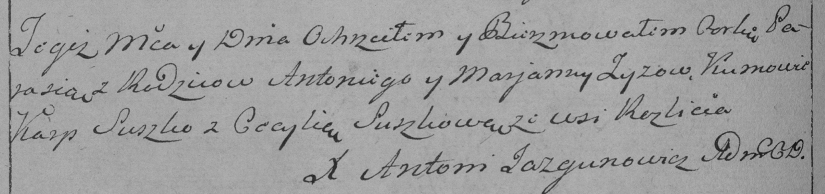 Tegiż Mca y Dnia Ochrzciłem y Bierzmowałem Corkę Pa-
rasią z Rodzicow Antoniego y Marjanny Zyzow, Kumowie
Karp Suszko z Cecylią Suszkową ze wsi
X Antoni Jazgunowicz